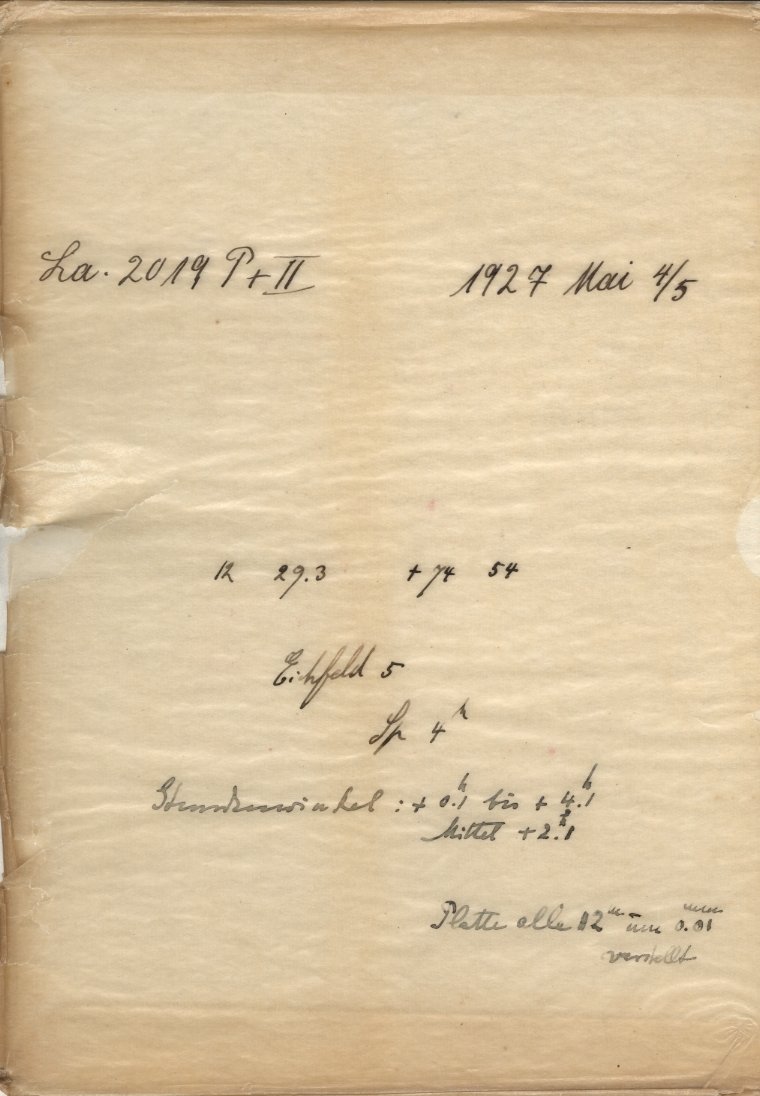 La. 2019 P + II 1927 Mai 4/5
12 29.3 + 74 54
Eichfeld 5
Sp 4ʰ
Stundenwinkel : + 0ʰ.1 bis + 4ʰ.1
Mittel + 2ʰ.1
Platte alle 12ᵐ um 0.01ᵐᵐ
verstellt